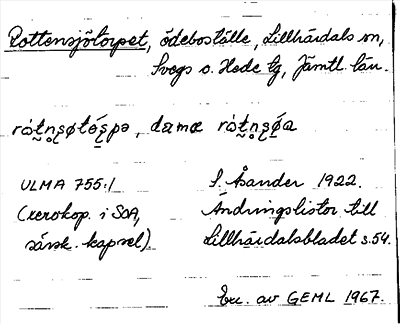 Rottensjötorpet, ödeboställe, Lillhärdals sn,
Svegs o. Hede tg, Jämtl. län.
ULMA 755:1
S. Åsander 1922.
(xerokop. i SOA,
Ändringslistor till
särsk. kapsel).
Lillhärdalsbladet s. 54.
Exc. av GEML 1967.